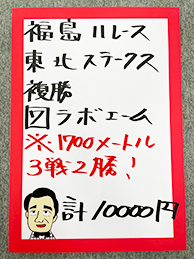 福島11レース
東北ステークス
複勝
⑫ラボエーム
※1700メートル
3戦2勝!
計10000円